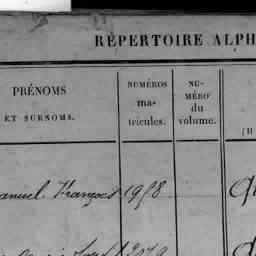 RÉPERTOIRE ALPH
PRÉNOMS
ET SURNOMS.
NUMÉROS
ma-
tricules.
NU-
MÉRO
du
volume.
anuel François 1958